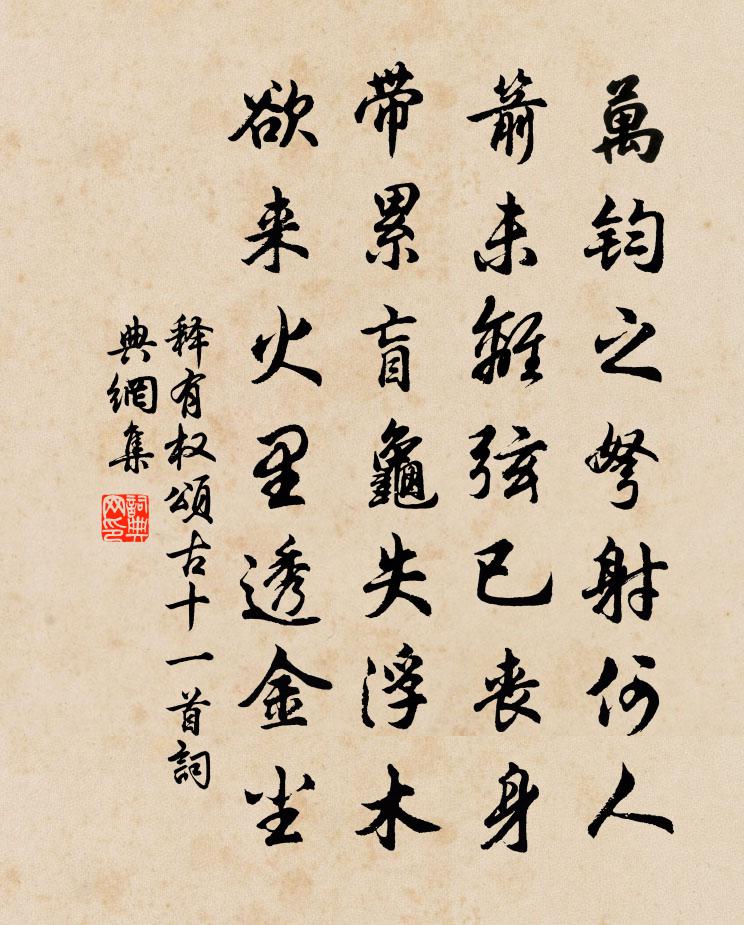 萬鈞之弩射何人
箭未離弦已丧身
带累盲龜失浮木
欲来火里透金尘
释有权頌古十一首詞
典網集
詞典
网印